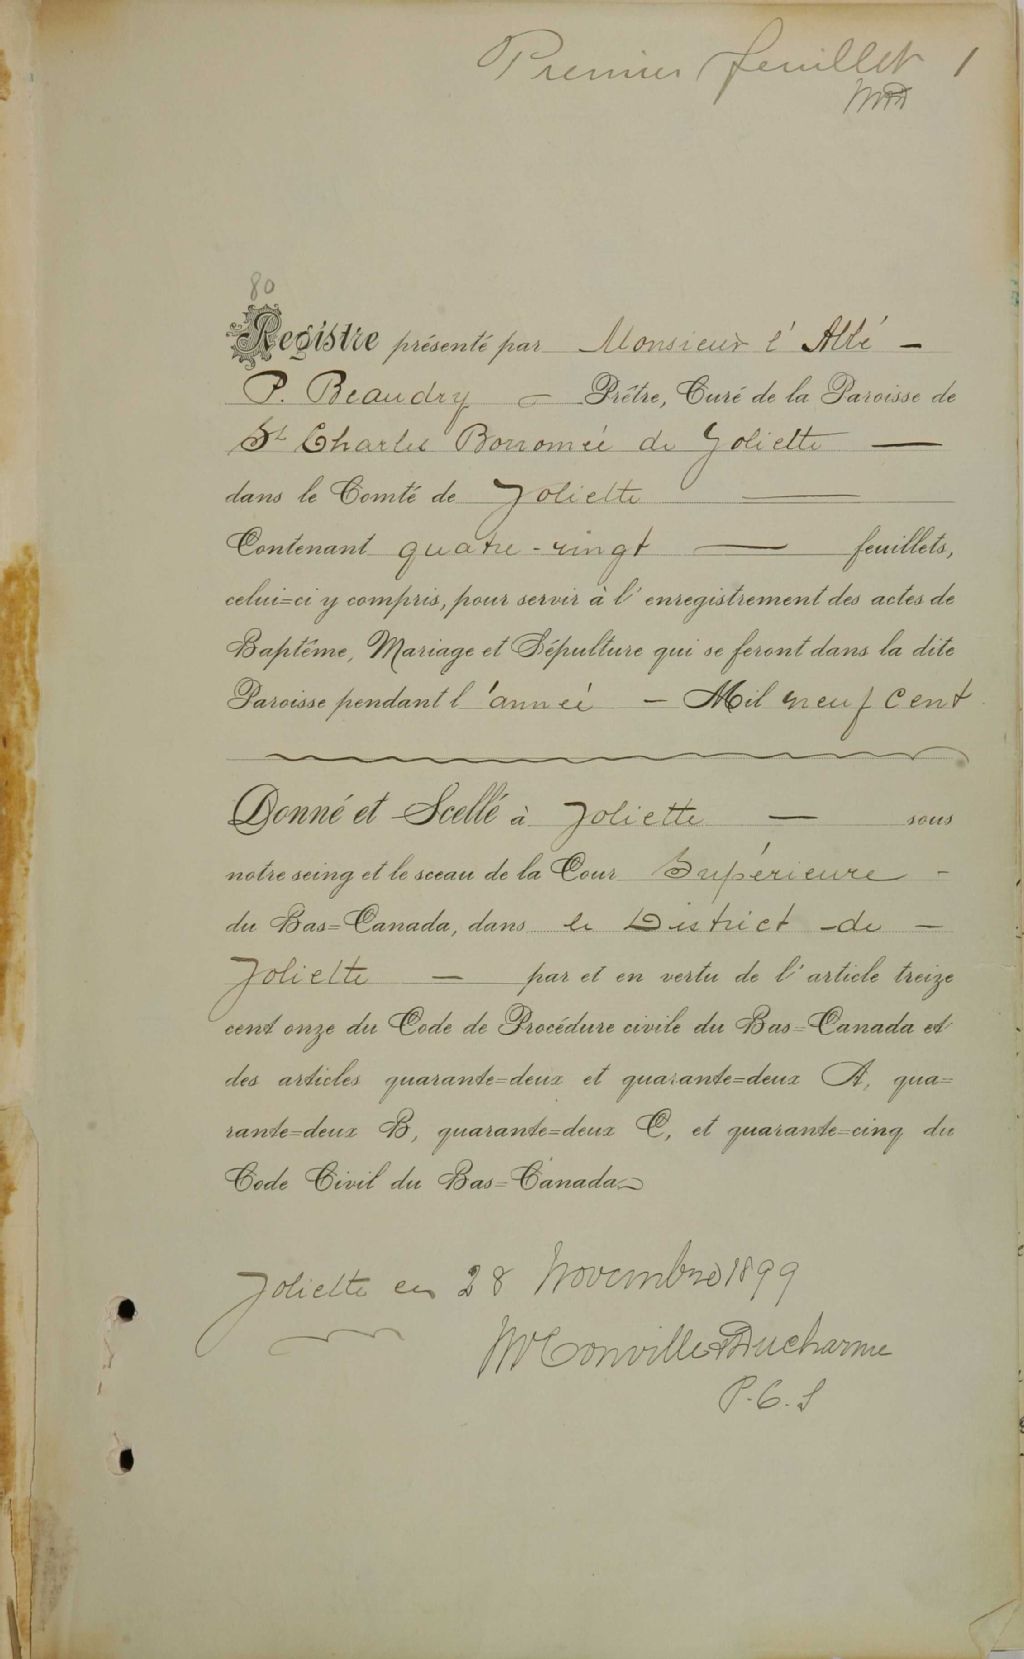 Premier feuillet 1
80
Registre présenté par Monsieur l'Abbé –
P. Beaudry – Prêtre, Curé de la Paroisse de
St Charles Borromée de Joliette —
dans le Comté de Joliette —
Contenant quatre-vingt — feuillets,
celui=ci y compris, pour servir à l'enregistrement des actes de
Baptême, Mariage et Sépulture qui se feront dans la dite
Paroisse pendant l'année – Mil neuf cent
Donné et Scellé à Joliette — sous
notre seing et le sceau de la Cour Supérieure –
du Bas=Canada, dans le District de –
Joliette — par et en vertu de l'article treize
cent onze du Code de Procédure civile du Bas=Canada et
des articles quarante=deux et quarante=deux A, qua=
rante=deux B, quarante=deux C, et quarante=cinq du
Code Civil du Bas=Canada.
Joliette ce 28 Novembre 1899
McConville & Ducharme
P.C.S